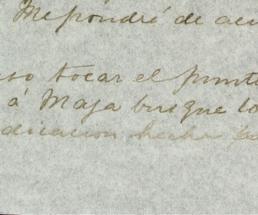 Me pondré de acu
so tocar el punto
á Maja busque lo
dicacion hecha